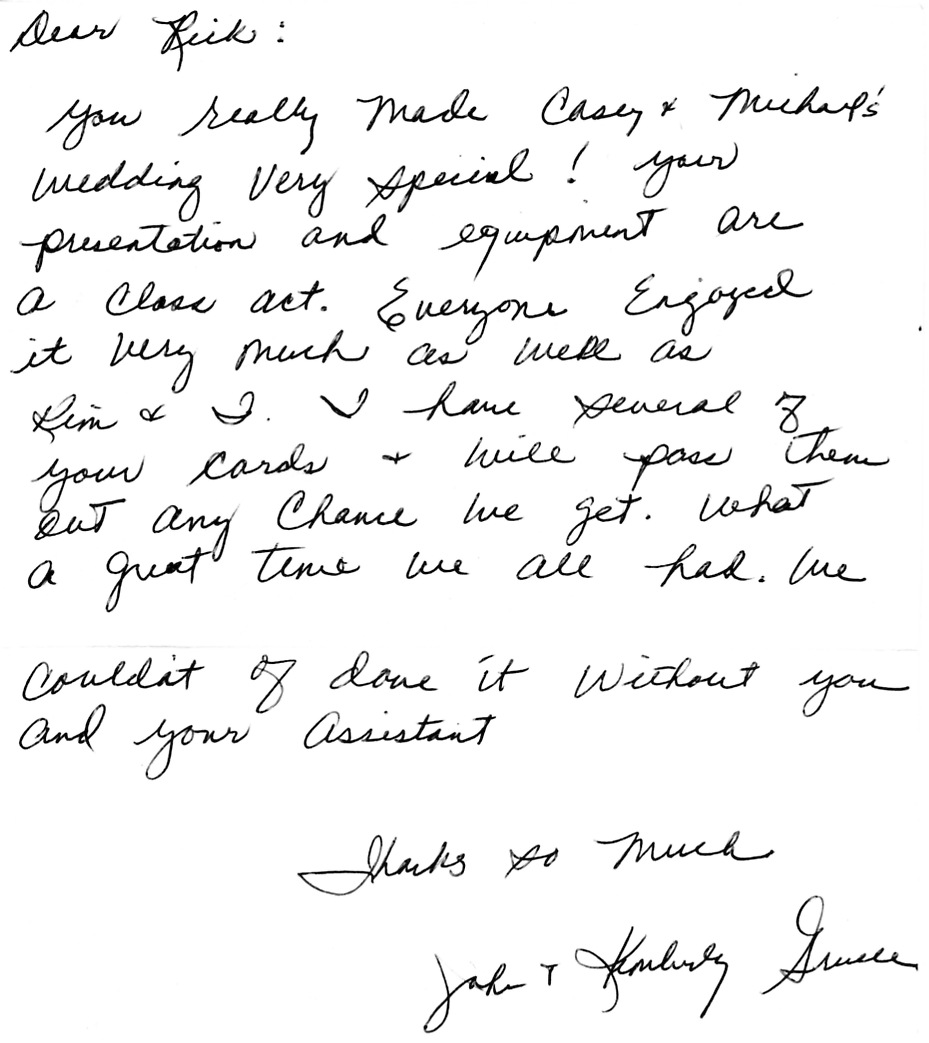 Dear Rick:
You really made Casey & Michael's
wedding very special! your
presentation and equipment are
a class act. Everyone Enjoyed
it very much as well as
Kim & I. I have several of
your cards & will pass them
out any chance we get. What
a great time we all had. We
couldn't of done it without you
and your assistant
Thanks so much
John & Kimberly